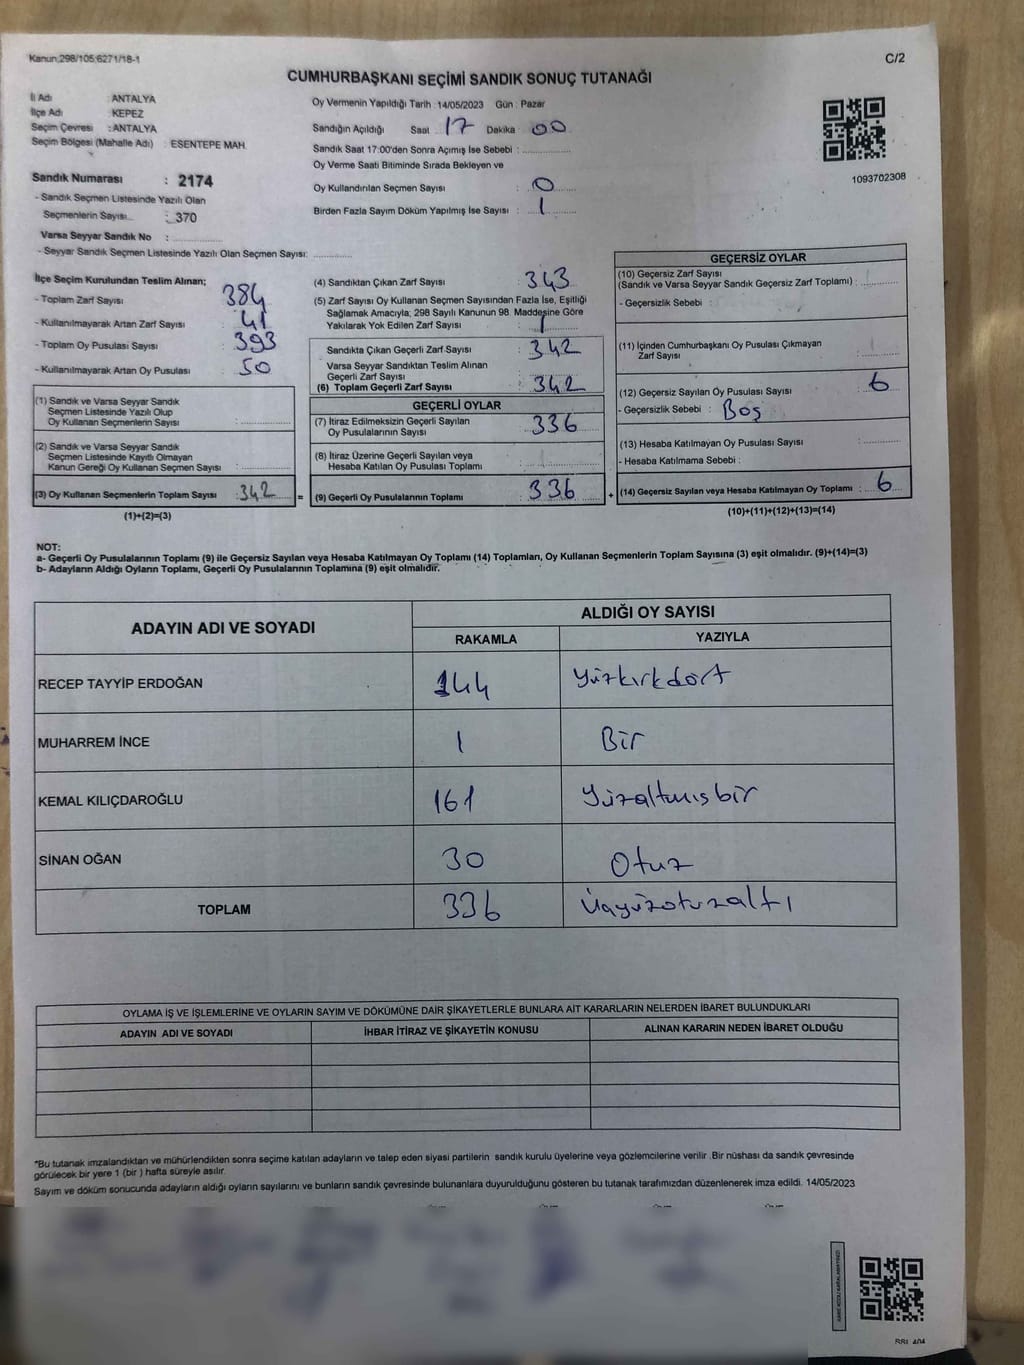 Kanun:298/105;6271/18-1
C/2
CUMHURBAŞKANI SEÇİMİ SANDIK SONUÇ TUTANAĞI
İl Adı : ANTALYA
İlçe Adı : KEPEZ
Seçim Çevresi : ANTALYA
Seçim Bölgesi (Mahalle Adı) : ESENTEPE MAH.
Sandık Numarası : 2174
- Sandık Seçmen Listesinde Yazılı Olan
Seçmenlerin Sayısı : 370
Varsa Seyyar Sandık No :
- Seyyar Sandık Seçmen Listesinde Yazılı Olan Seçmen Sayısı:
Oy Vermenin Yapıldığı Tarih : 14/05/2023 Gün : Pazar
Sandığın Açıldığı Saat : 17 Dakika : 00
Sandık Saat 17:00'den Sonra Açımış İse Sebebi :
Oy Verme Saati Bitiminde Sırada Bekleyen ve
Oy Kullandırılan Seçmen Sayısı : 0
Birden Fazla Sayım Döküm Yapılmış İse Sayısı : 1
1093702308
İlçe Seçim Kurulundan Teslim Alınan;
- Toplam Zarf Sayısı : 384
- Kullanılmayarak Artan Zarf Sayısı : 41
- Toplam Oy Pusulası Sayısı : 393
- Kullanılmayarak Artan Oy Pusulası : 50
(1) Sandık ve Varsa Seyyar Sandık
Seçmen Listesinde Yazılı Olup
Oy Kullanan Seçmenlerin Sayısı :
(2) Sandık ve Varsa Seyyar Sandık
Seçmen Listesinde Kayıtlı Olmayan
Kanun Gereği Oy Kullanan Seçmen Sayısı :
(3) Oy Kullanan Seçmenlerin Toplam Sayısı : 342 =
(1)+(2)=(3)
(4) Sandıktan Çıkan Zarf Sayısı : 343
(5) Zarf Sayısı Oy Kullanan Seçmen Sayısından Fazla İse, Eşitliği
Sağlamak Amacıyla; 298 Sayılı Kanunun 98. Maddesine Göre
Yakılarak Yok Edilen Zarf Sayısı : 1
Sandıkta Çıkan Geçerli Zarf Sayısı : 342
Varsa Seyyar Sandıktan Teslim Alınan
Geçerli Zarf Sayısı :
(6) Toplam Geçerli Zarf Sayısı : 342
GEÇERLİ OYLAR
(7) İtiraz Edilmeksizin Geçerli Sayılan
Oy Pusulalarının Sayısı : 336
(8) İtiraz Üzerine Geçerli Sayılan veya
Hesaba Katılan Oy Pusulası Toplamı :
(9) Geçerli Oy Pusulalarının Toplamı : 336 +
GEÇERSİZ OYLAR
(10) Geçersiz Zarf Sayısı
(Sandık ve Varsa Seyyar Sandık Geçersiz Zarf Toplamı) :
- Geçersizlik Sebebi :
(11) İçinden Cumhurbaşkanı Oy Pusulası Çıkmayan
Zarf Sayısı :
(12) Geçersiz Sayılan Oy Pusulası Sayısı : 6
- Geçersizlik Sebebi : Boş
(13) Hesaba Katılmayan Oy Pusulası Sayısı :
- Hesaba Katılmama Sebebi :
(14) Geçersiz Sayılan veya Hesaba Katılmayan Oy Toplamı : 6
(10)+(11)+(12)+(13)=(14)
NOT:
a- Geçerli Oy Pusulalarının Toplamı (9) ile Geçersiz Sayılan veya Hesaba Katılmayan Oy Toplamı (14) Toplamları, Oy Kullanan Seçmenlerin Toplam Sayısına (3) eşit olmalıdır. (9)+(14)=(3)
b- Adayların Aldığı Oyların Toplamı, Geçerli Oy Pusulalarının Toplamına (9) eşit olmalıdır.
ADAYIN ADI VE SOYADI
ALDIĞI OY SAYISI
RAKAMLA YAZIYLA
RECEP TAYYİP ERDOĞAN 144 Yüzkırkdört
MUHARREM İNCE 1 Bir
KEMAL KILIÇDAROĞLU 161 Yüzaltmışbir
SİNAN OĞAN 30 Otuz
TOPLAM 336 Üçyüzotuzaltı
OYLAMA İŞ VE İŞLEMLERİNE VE OYLARIN SAYIM VE DÖKÜMÜNE DAİR ŞİKAYETLERLE BUNLARA AİT KARARLARIN NELERDEN İBARET BULUNDUKLARI
ADAYIN ADI VE SOYADI İHBAR İTİRAZ VE ŞİKAYETİN KONUSU ALINAN KARARIN NEDEN İBARET OLDUĞU
*Bu tutanak imzalandıktan ve mühürlendikten sonra seçime katılan adayların ve talep eden siyasi partilerin sandık kurulu üyelerine veya gözlemcilerine verilir .Bir nüshası da sandık çevresinde
görülecek bir yere 1 (bir ) hafta süreyle asılır.
Sayım ve döküm sonucunda adayların aldığı oyların sayılarını ve bunların sandık çevresinde bulunanlara duyurulduğunu gösteren bu tutanak tarafımızdan düzenlenerek imza edildi. 14/05/2023